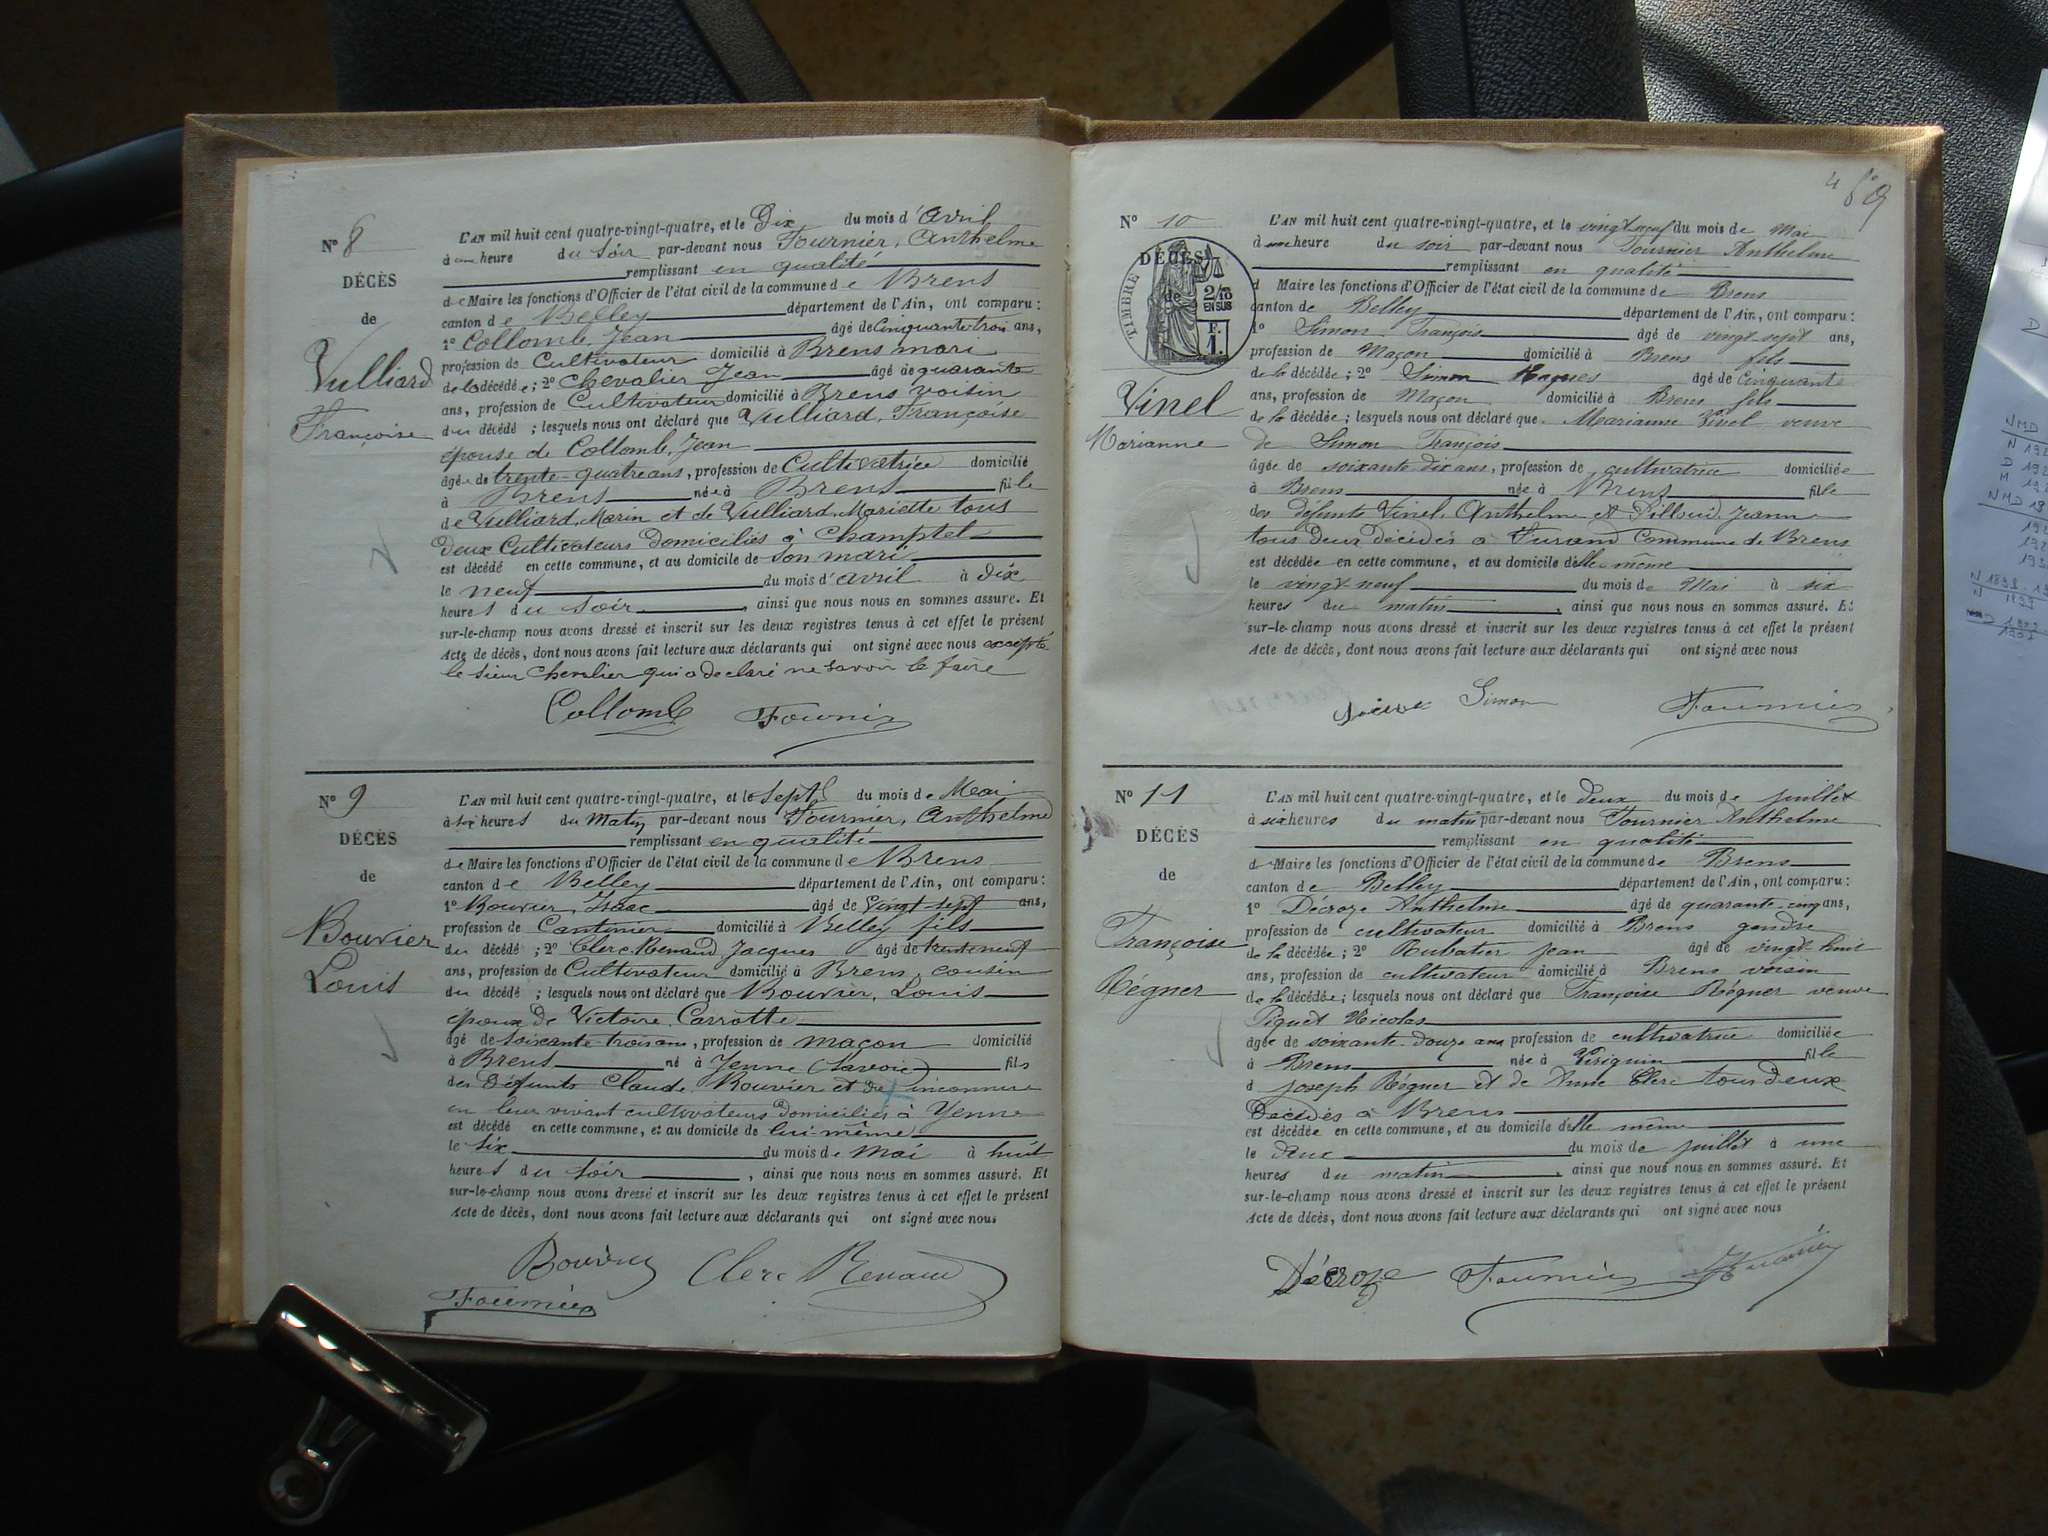 N° 8
DÉCÈS
de
Vulliard
Françoise
L'AN mil huit cent quatre-vingt-quatre, et le Dix du mois d'avril
à une heure du soir par-devant nous Fournier, Anthelme
remplissant en qualité
de Maire les fonctions d'Officier de l'état civil de la commune de Brens
canton de Belley département de l'Ain, ont comparu :
1° Collomb, Jean âgé de Cinquante trois ans,
profession de Cultivateur domicilié à Brens mari
de la décédée ; 2° Chevalier Jean âgé de quarante
ans, profession de Cultivateur domicilié à Brens voisin
du décédé ; lesquels nous ont déclaré que Vulliard, Françoise
épouse de Collomb, Jean
âgée de trente-quatre ans, profession de Cultivatrice domicilié
à Brens née à Brens fille
de Vulliard, Marin et de Vulliard, Mariette tous
deux Cultivateurs domiciliés à Champtel
est décédé en cette commune, et au domicile de son mari
le neuf du mois d'avril à dix
heures du soir, ainsi que nous nous en sommes assuré. Et
sur-le-champ nous avons dressé et inscrit sur les deux registres tenus à cet effet le présent
Acte de décès, dont nous avons fait lecture aux déclarants qui ont signé avec nous excepté
le sieur Chevalier qui a déclaré ne savoir le faire
Collomb Fournier
N° 9
DÉCÈS
de
Bouvier
Louis
L'AN mil huit cent quatre-vingt-quatre, et le sept du mois de Mai
à six heures du Matin par-devant nous Fournier, Anthelme
remplissant en qualité
de Maire les fonctions d'Officier de l'état civil de la commune de Brens
canton de Belley département de l'Ain, ont comparu :
1° Bouvier, Isaac âgé de Vingt sept ans,
profession de Cantinier domicilié à Belley fils
du décédé ; 2° Clerc-Renaud Jacques âgé de trente neuf
ans, profession de Cultivateur domicilié à Brens, cousin
du décédé ; lesquels nous ont déclaré que Bouvier, Louis
époux de Victoire Carrotte
âgé de soixante-trois ans, profession de maçon domicilié
à Brens né à Yenne (Savoie) fils
des défunts Claude Bouvier et de inconnue
en leur vivant cultivateurs domiciliés à Yenne
est décédé en cette commune, et au domicile de lui-même
le six du mois de Mai à huit
heures du soir, ainsi que nous nous en sommes assuré. Et
sur-le-champ nous avons dressé et inscrit sur les deux registres tenus à cet effet le présent
Acte de décès, dont nous avons fait lecture aux déclarants qui ont signé avec nous
Bouvier Clerc Renaud
Fournier
N° 10
DÉCÈS
de
TIMBRE
2/10
EN SUS
1 F.
Vinel
Marianne
L'AN mil huit cent quatre-vingt-quatre, et le vingt neuf du mois de Mai
à une heure du soir par-devant nous Fournier Anthelme
remplissant en qualité
d Maire les fonctions d'Officier de l'état civil de la commune de Brens
canton de Belley département de l'Ain, ont comparu :
1° Simon François âgé de vingt-sept ans,
profession de Maçon domicilié à Brens fils
de la décédée ; 2° Simon âgé de Cinquante
ans, profession de Maçon domicilié à Brens fils
de la décédée ; lesquels nous ont déclaré que Marianne Vinel veuve
de Simon François
âgée de soixante dix ans, profession de cultivatrice domiciliée
à Brens née à Brens fille
des défunts Vinel, Anthelme et Pilloud, Jeanne
tous deux décédés à Furand Commune de Brens
est décédée en cette commune, et au domicile d'elle-même
le vingt neuf du mois de Mai à six
heures du matin, ainsi que nous nous en sommes assuré. Et
sur-le-champ nous avons dressé et inscrit sur les deux registres tenus à cet effet le présent
Acte de décès, dont nous avons fait lecture aux déclarants qui ont signé avec nous
Simon Fournier
N° 11
DÉCÈS
de
Françoise
Régner
L'AN mil huit cent quatre-vingt-quatre, et le deux du mois de juillet
à six heures du matin par-devant nous Fournier Anthelme
remplissant en qualité
de Maire les fonctions d'Officier de l'état civil de la commune de Brens
canton de Belley département de l'Ain, ont comparu :
1° Décroze Anthelme âgé de quarante-cinq ans,
profession de cultivateur domicilié à Brens gendre
de la décédée ; 2° Rubatier Jean âgé de vingt-huit
ans, profession de cultivateur domicilié à Brens voisin
de la décédée ; lesquels nous ont déclaré que Françoise Régner veuve
Piquet Nicolas
âgée de soixante-douze ans profession de cultivatrice domiciliée
à Brens née à Virignin fille
d Joseph Régner et de Anne Clerc tous deux
décédés à Brens
est décédée en cette commune, et au domicile d'elle même
le deux du mois de juillet à une
heures du matin, ainsi que nous nous en sommes assuré. Et
sur-le-champ nous avons dressé et inscrit sur les deux registres tenus à cet effet le présent
Acte de décès, dont nous avons fait lecture aux déclarants qui ont signé avec nous
Décroze Fournier